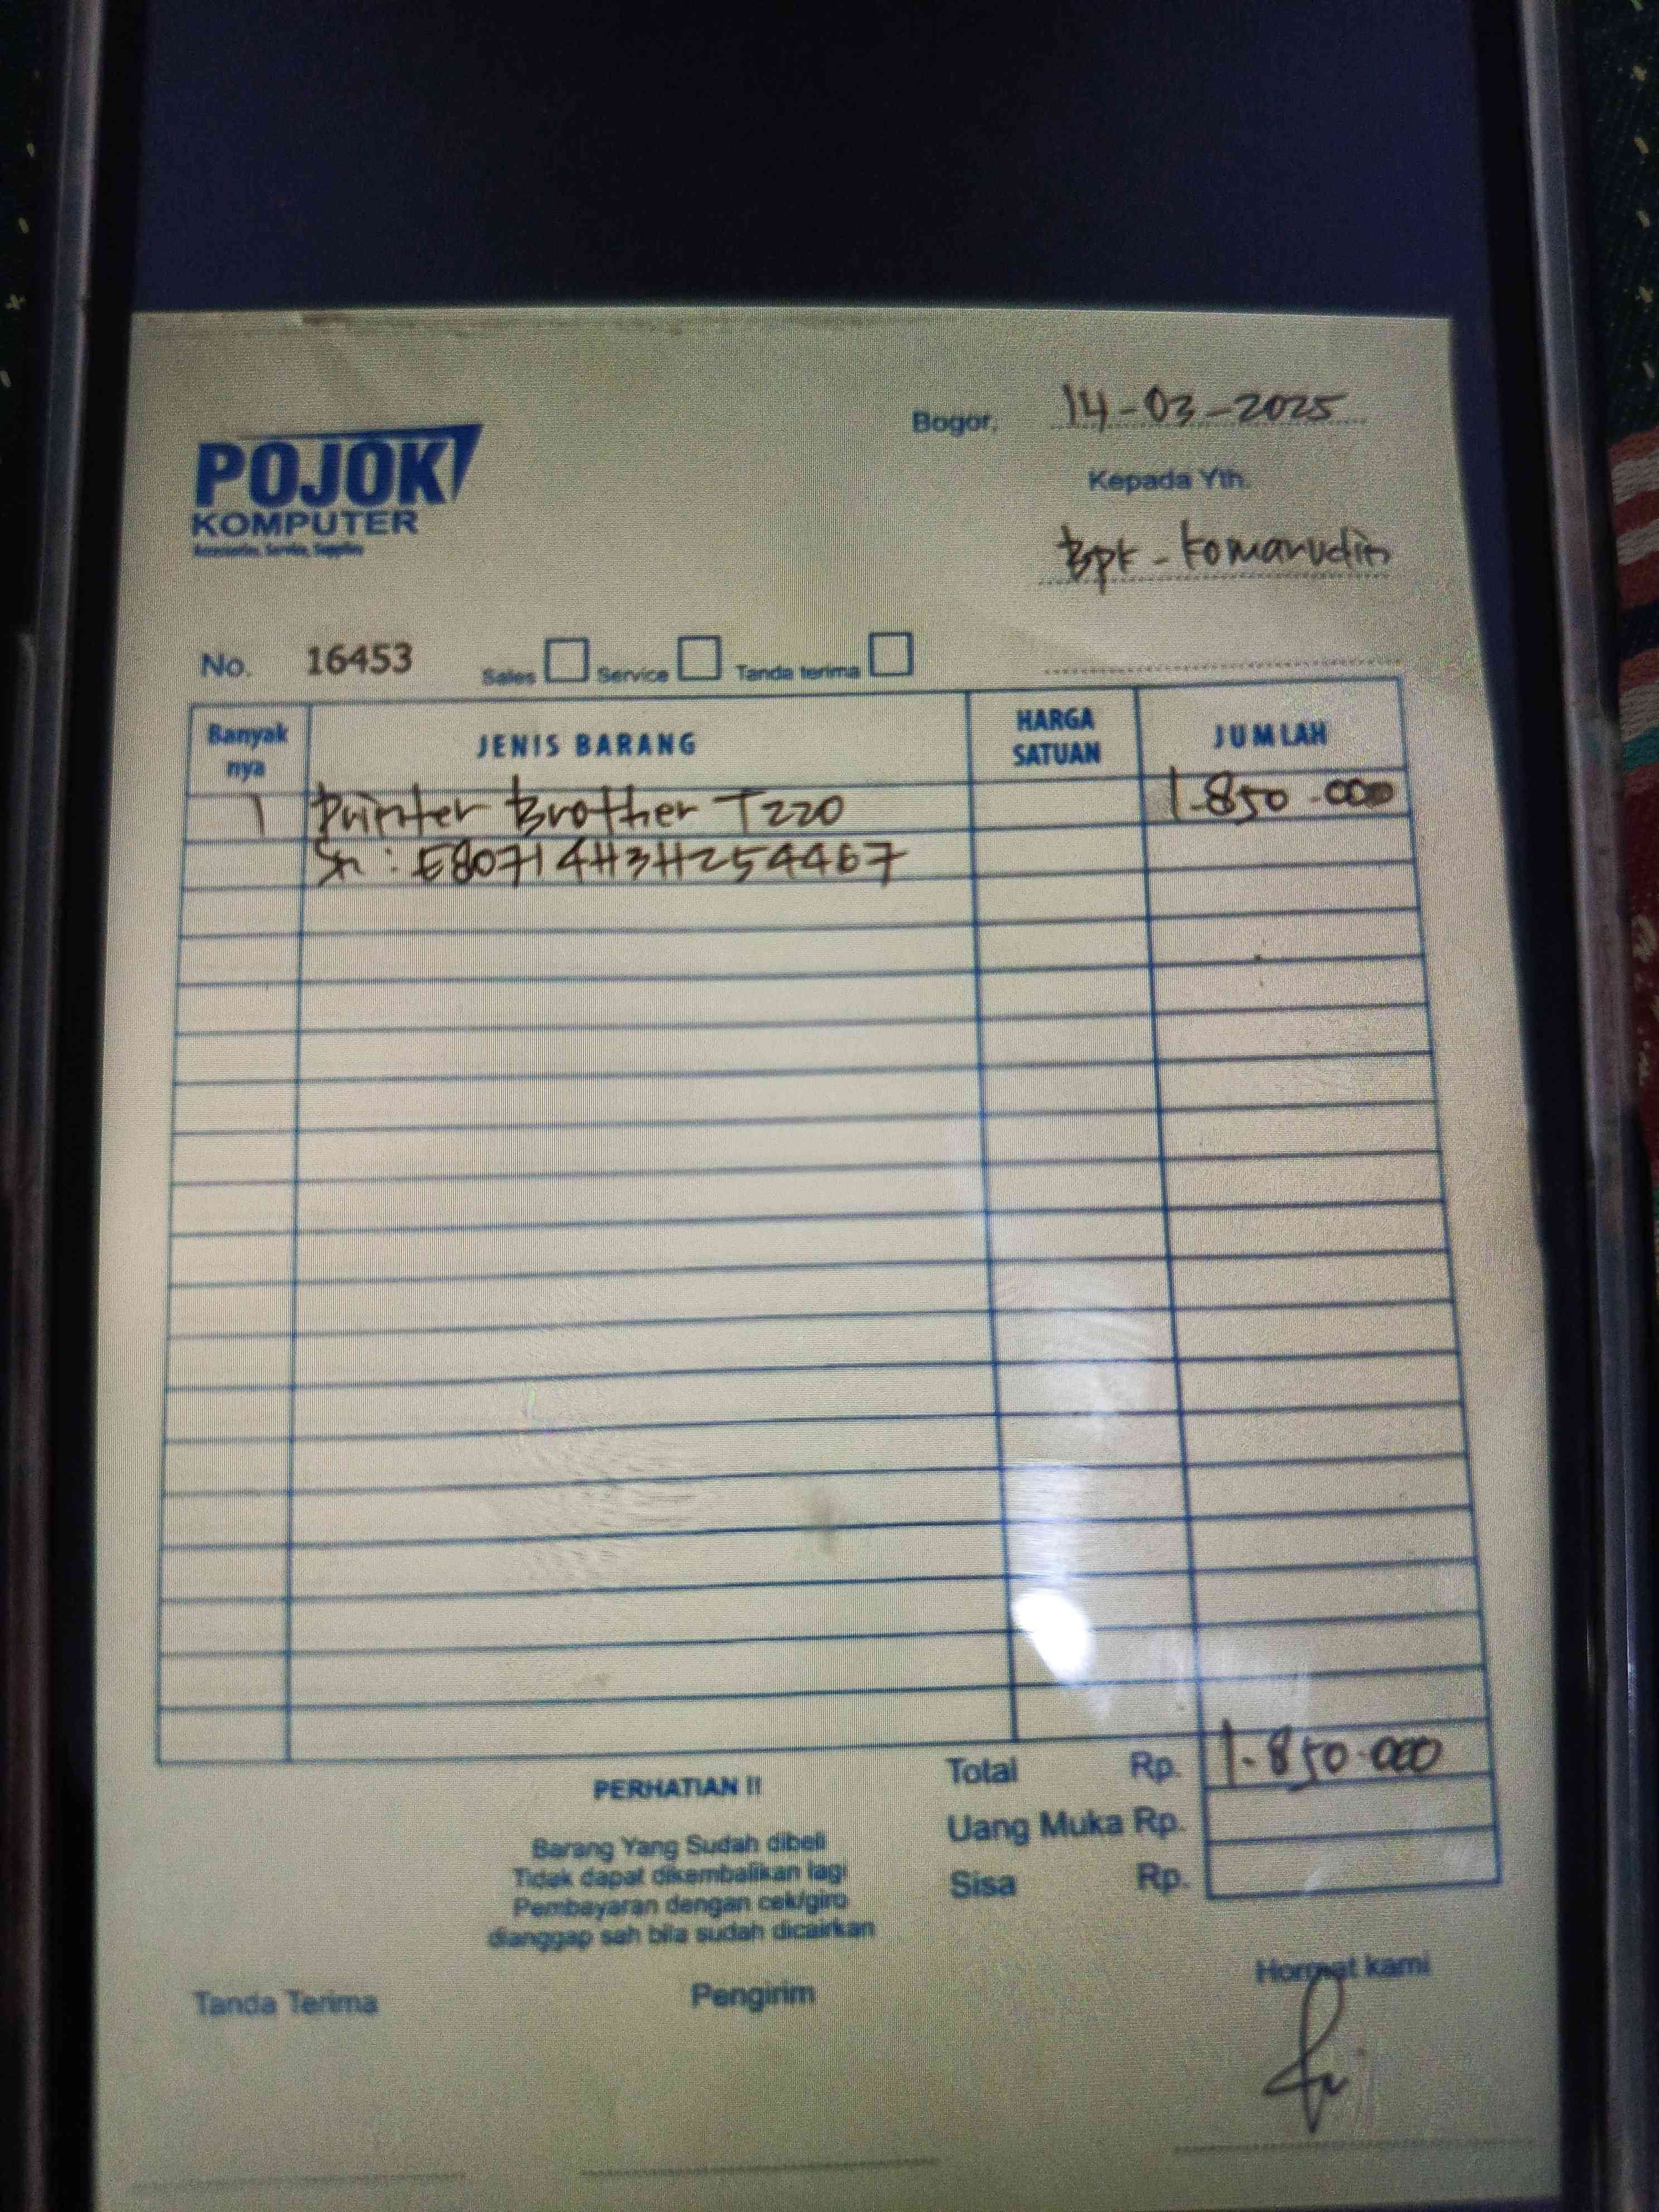 Bogor, 14-03-2025
POJOK
KOMPUTER
Accessories, Service, Supplies
Kepada Yth.
Bpk - Komarudin
No. 16453 Sales Service Tanda terima
Banyak nya JENIS BARANG HARGA SATUAN JUMLAH
1 Printer Brother T220 1.850.000
Sn : E80714H3H254467
Total Rp. 1.850.000
Uang Muka Rp.
Sisa Rp.
PERHATIAN !!
Barang Yang Sudah dibeli
Tidak dapat dikembalikan lagi
Pembayaran dengan cek/giro
dianggap sah bila sudah dicairkan
Tanda Terima Pengirim Hormat kami